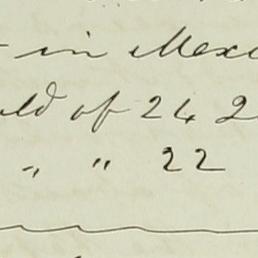 in Mexi
ld of 24 2
" " 22